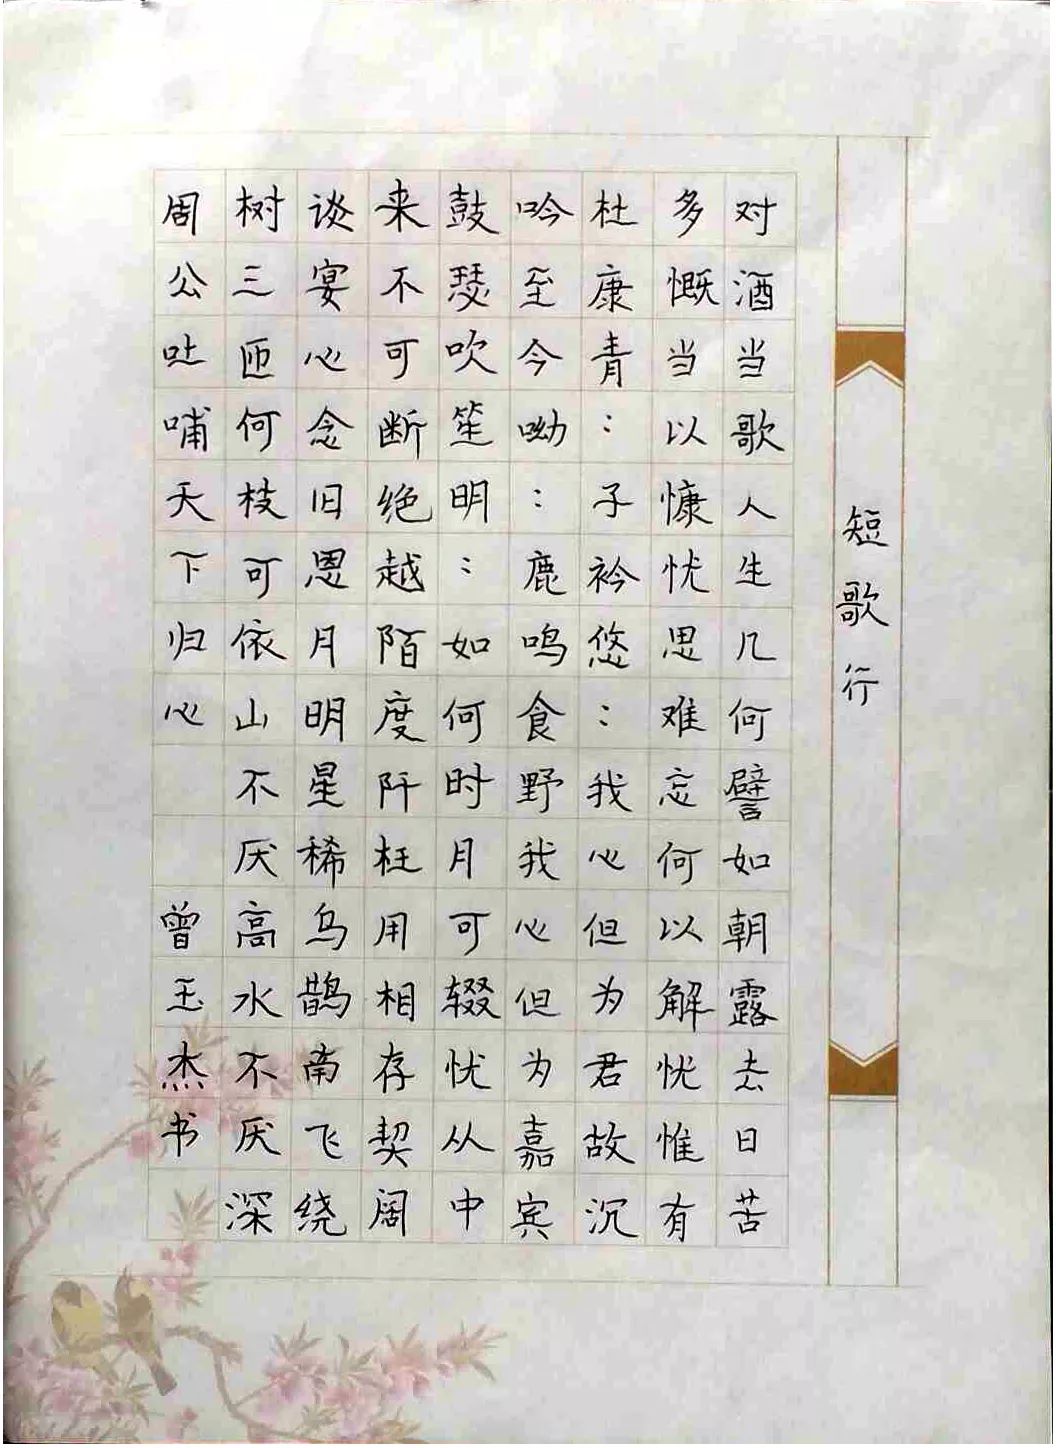 短歌行
对酒当歌人生几何譬如朝露去日苦
多慨当以慷忧思难忘何以解忧惟有
杜康青：子衿悠：我心但为君故沉
吟至今呦：鹿鸣食野我心但为嘉宾
鼓瑟吹笙明：如何时月可辍忧从中
来不可断绝越陌度阡枉用相存契阔
谈宴心念旧恩月明星稀乌鹊南飞绕
树三匝何枝可依山不厌高水不厌深
周公吐哺天下归心
曾玉杰书